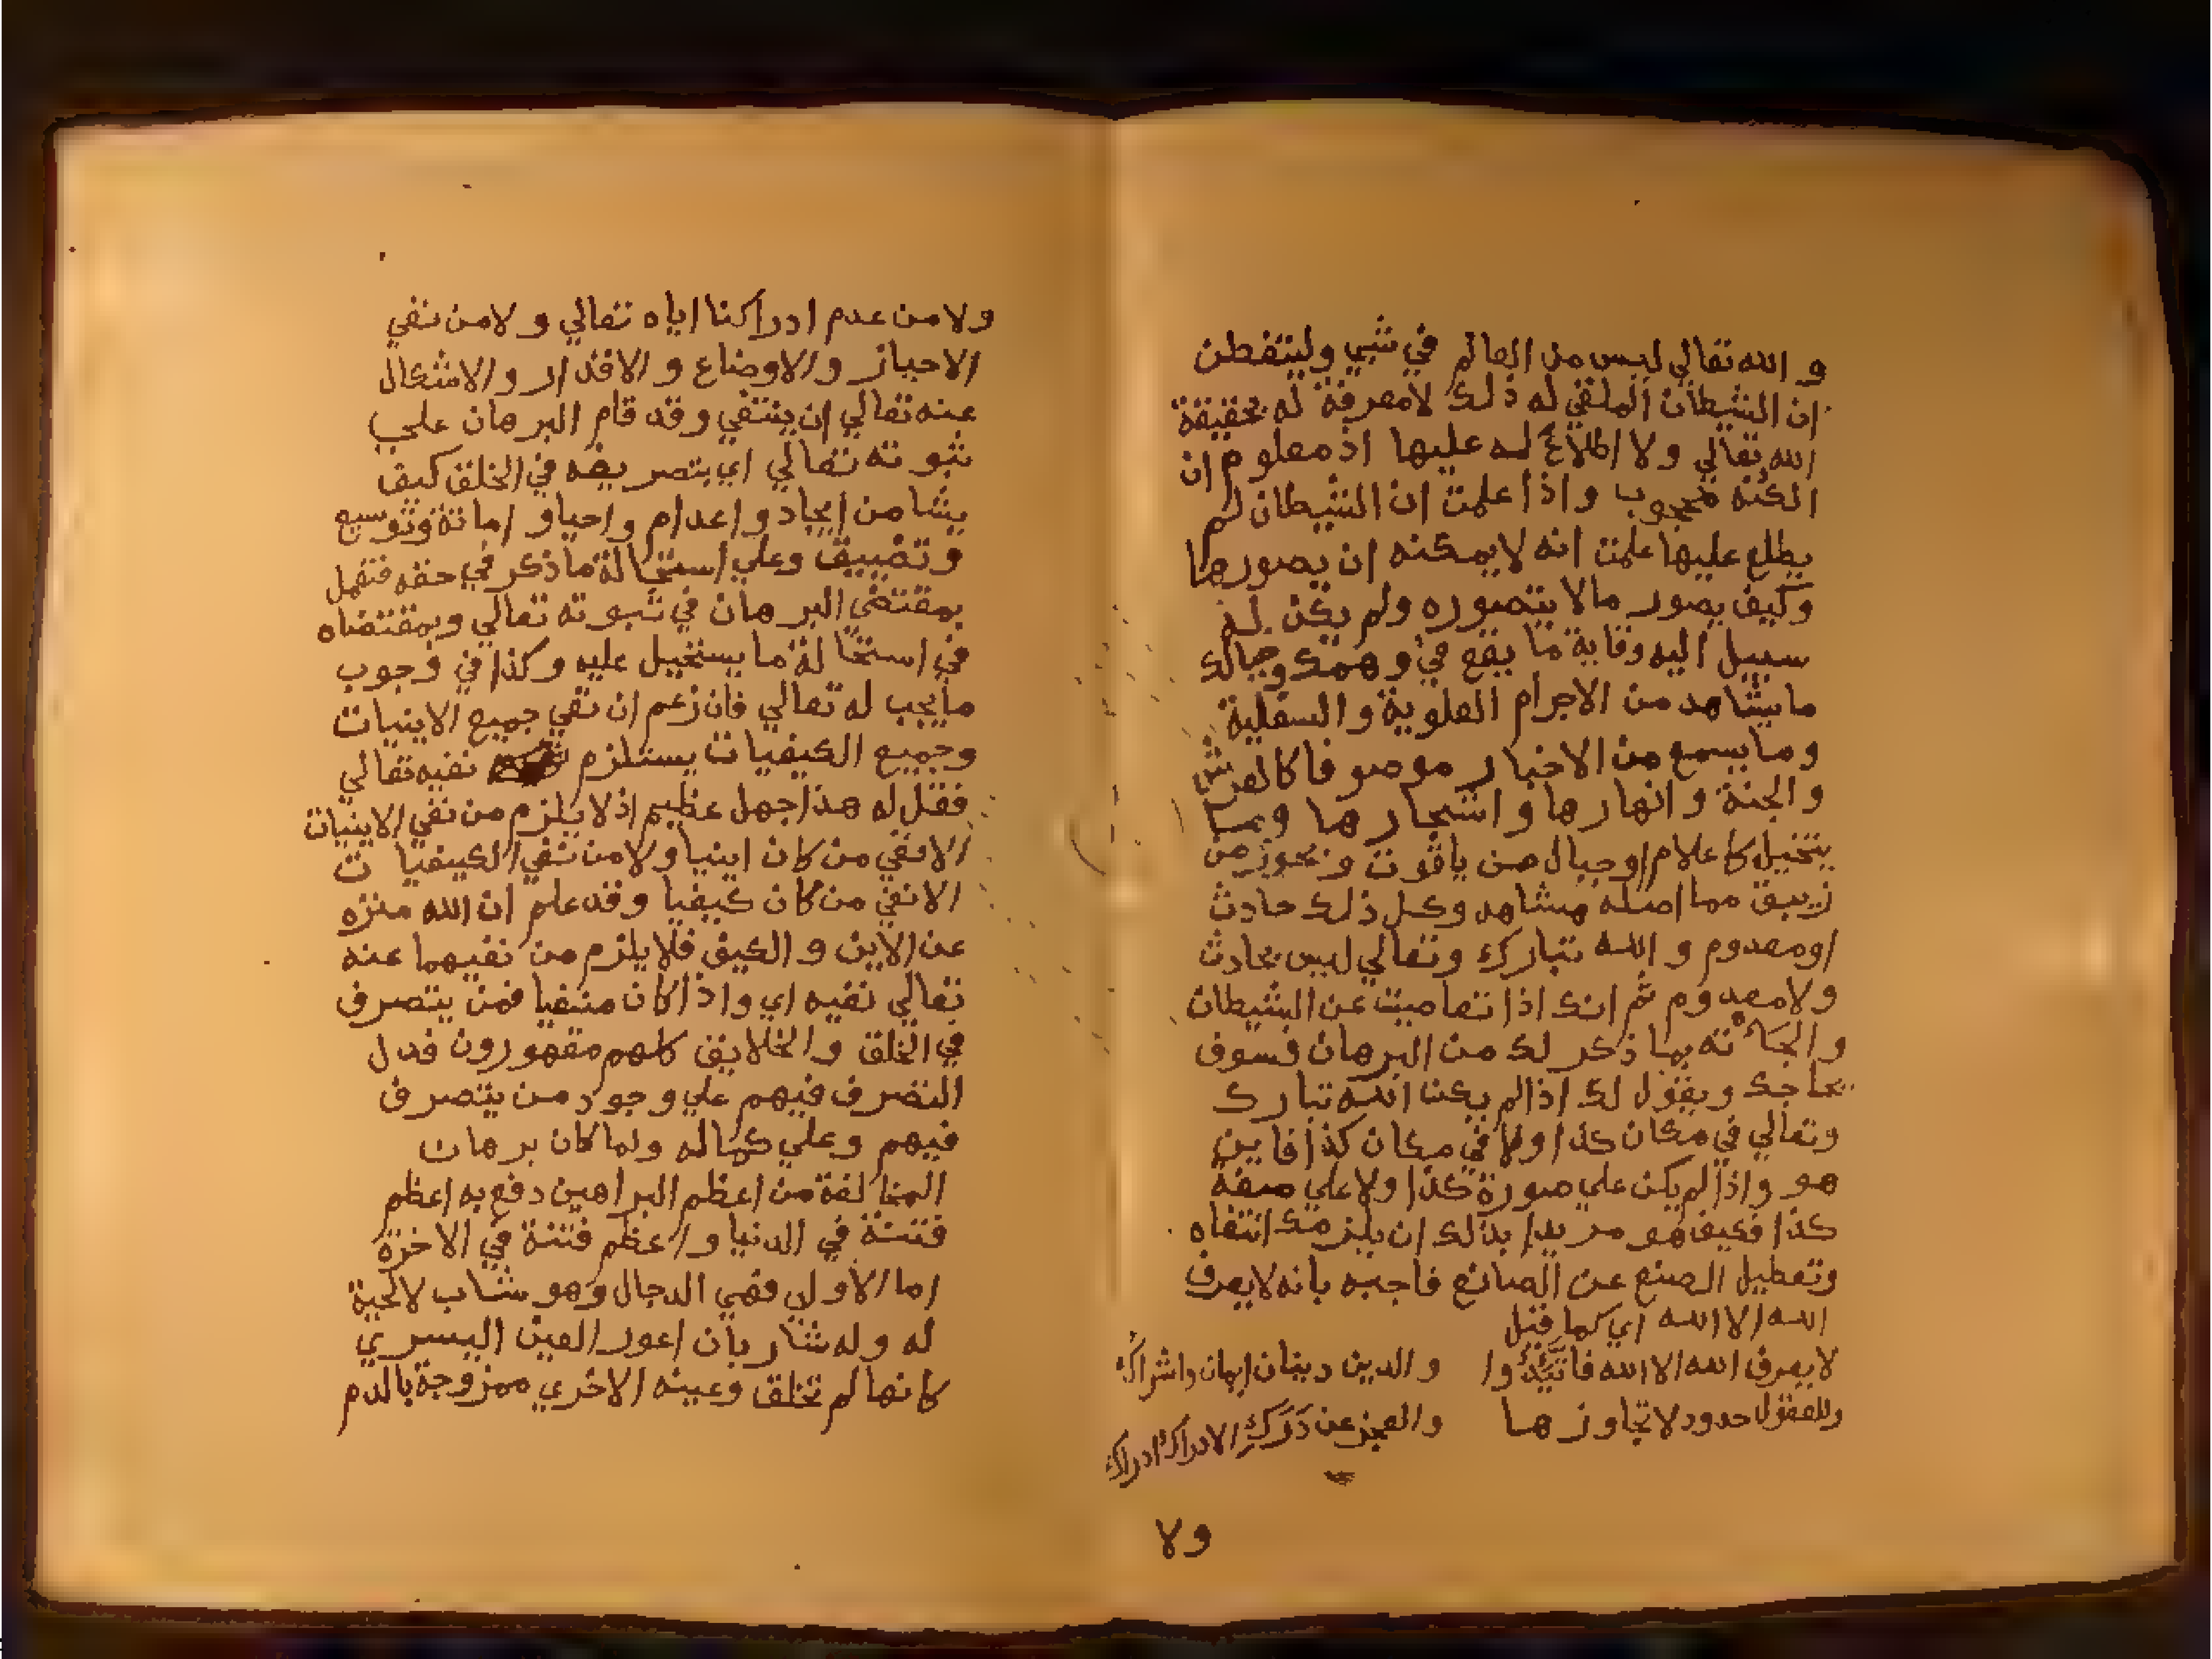 و الله تعالي ليس من العالم في شي وليتفطن
ان الشيطان الملقي له ذلك لامعرفة له بحقيقة
الله تعالي ولا اطلاع له عليها اذ معلوم ان
الكنه محجوب واذا علمت ان الشيطان لم
يطلع عليها علمت انه لا يمكنه ان يصورها
وكيف يصور مالا يتصوره ولم يكن له
سبيل اليه وغاية ما يقع في وهمك وخيالك
ما يشاهد من الاجرام العلوية والسفلية
وما يسمع من الاخبار موصوفا كالعرش
والجنة وانهارها واشجارها وبما
يتخيل كاعلام اوجبال من ياقوت وبحور من
زيبق مما اصله مشاهد وكل ذلك حادث
اومعدوم و الله تبارك وتعالي ليس بحادث
ولامعدوم ثم انك اذا تعاميت عن الشيطان
والجأته بما ذكر لك من البرهان فسوف
يحاجك ويقول لك اذا لم يكن الله تبارك
وتعالي في مكان كذا ولا في مكان كذا فاين
هو واذا لم يكن علي صورة كذا ولا علي صفة
كذا فكيف هو مريدا بذلك ان يلزمك انتفاه
وتعطيل الصنع عن الصانع فاجبه بانه لا يعرف
الله الا الله اي كما قيل
لا يعرف الله الا الله فاتيدوا والدين دينان ايمان واشراك
وللعقول حدود لا تجاوزها والعجز عن دَرَكِ الادراك ادراك
ولا
ولا من عدم ادراكنا اياه تعالي ولا من نفي
الاحياز والاوضاع و الاقدار والاشكال
عنه تعالي ان ينتفي وقد قام البرهان علي
ثبوته تعالي اي بتصريفه في الخلق كيف
يشا من ايجاد واعدام واحياو اماتة وتوسيع
وتضييق وعلي استحالة ما ذكر في حقه فتعمل
بمقتضي البرهان في ثبوته تعالي وبمقتضاه
في استحالة ما يستحيل عليه وكذا في وجوب
مايجب له تعالي فان زعم ان نفي جميع الاينيات
وجميع الكيفيات يستلزم نفيه تعالي
فقل له هذا جهل عظيم اذ لا يلزم من نفي الاينيات
الا نفي من كان اينيا ولا من نفي الكيفيات
الا نفي من كان كيفيا وقد علم ان الله منزه
عن الاين و الكيف فلا يلزم من نفيهما عنه
تعالي نفيه اي واذا كان منتفيا فمن يتصرف
في الخلق والخلايق كلهم مقهورون فدل
التصرف فيهم علي وجود من يتصرف
فيهم وعلي كماله ولما كان برهان
المخالفة من اعظم البراهين دفع به اعظم
فتنة في الدنيا واعظم فتنة في الاخرة
اما الاولي فهي الدجال وهو شاب لالحية
له وله شاربان اعور العين اليسري
كانها لم تخلق وعينه الاخري ممزوجة بالدم